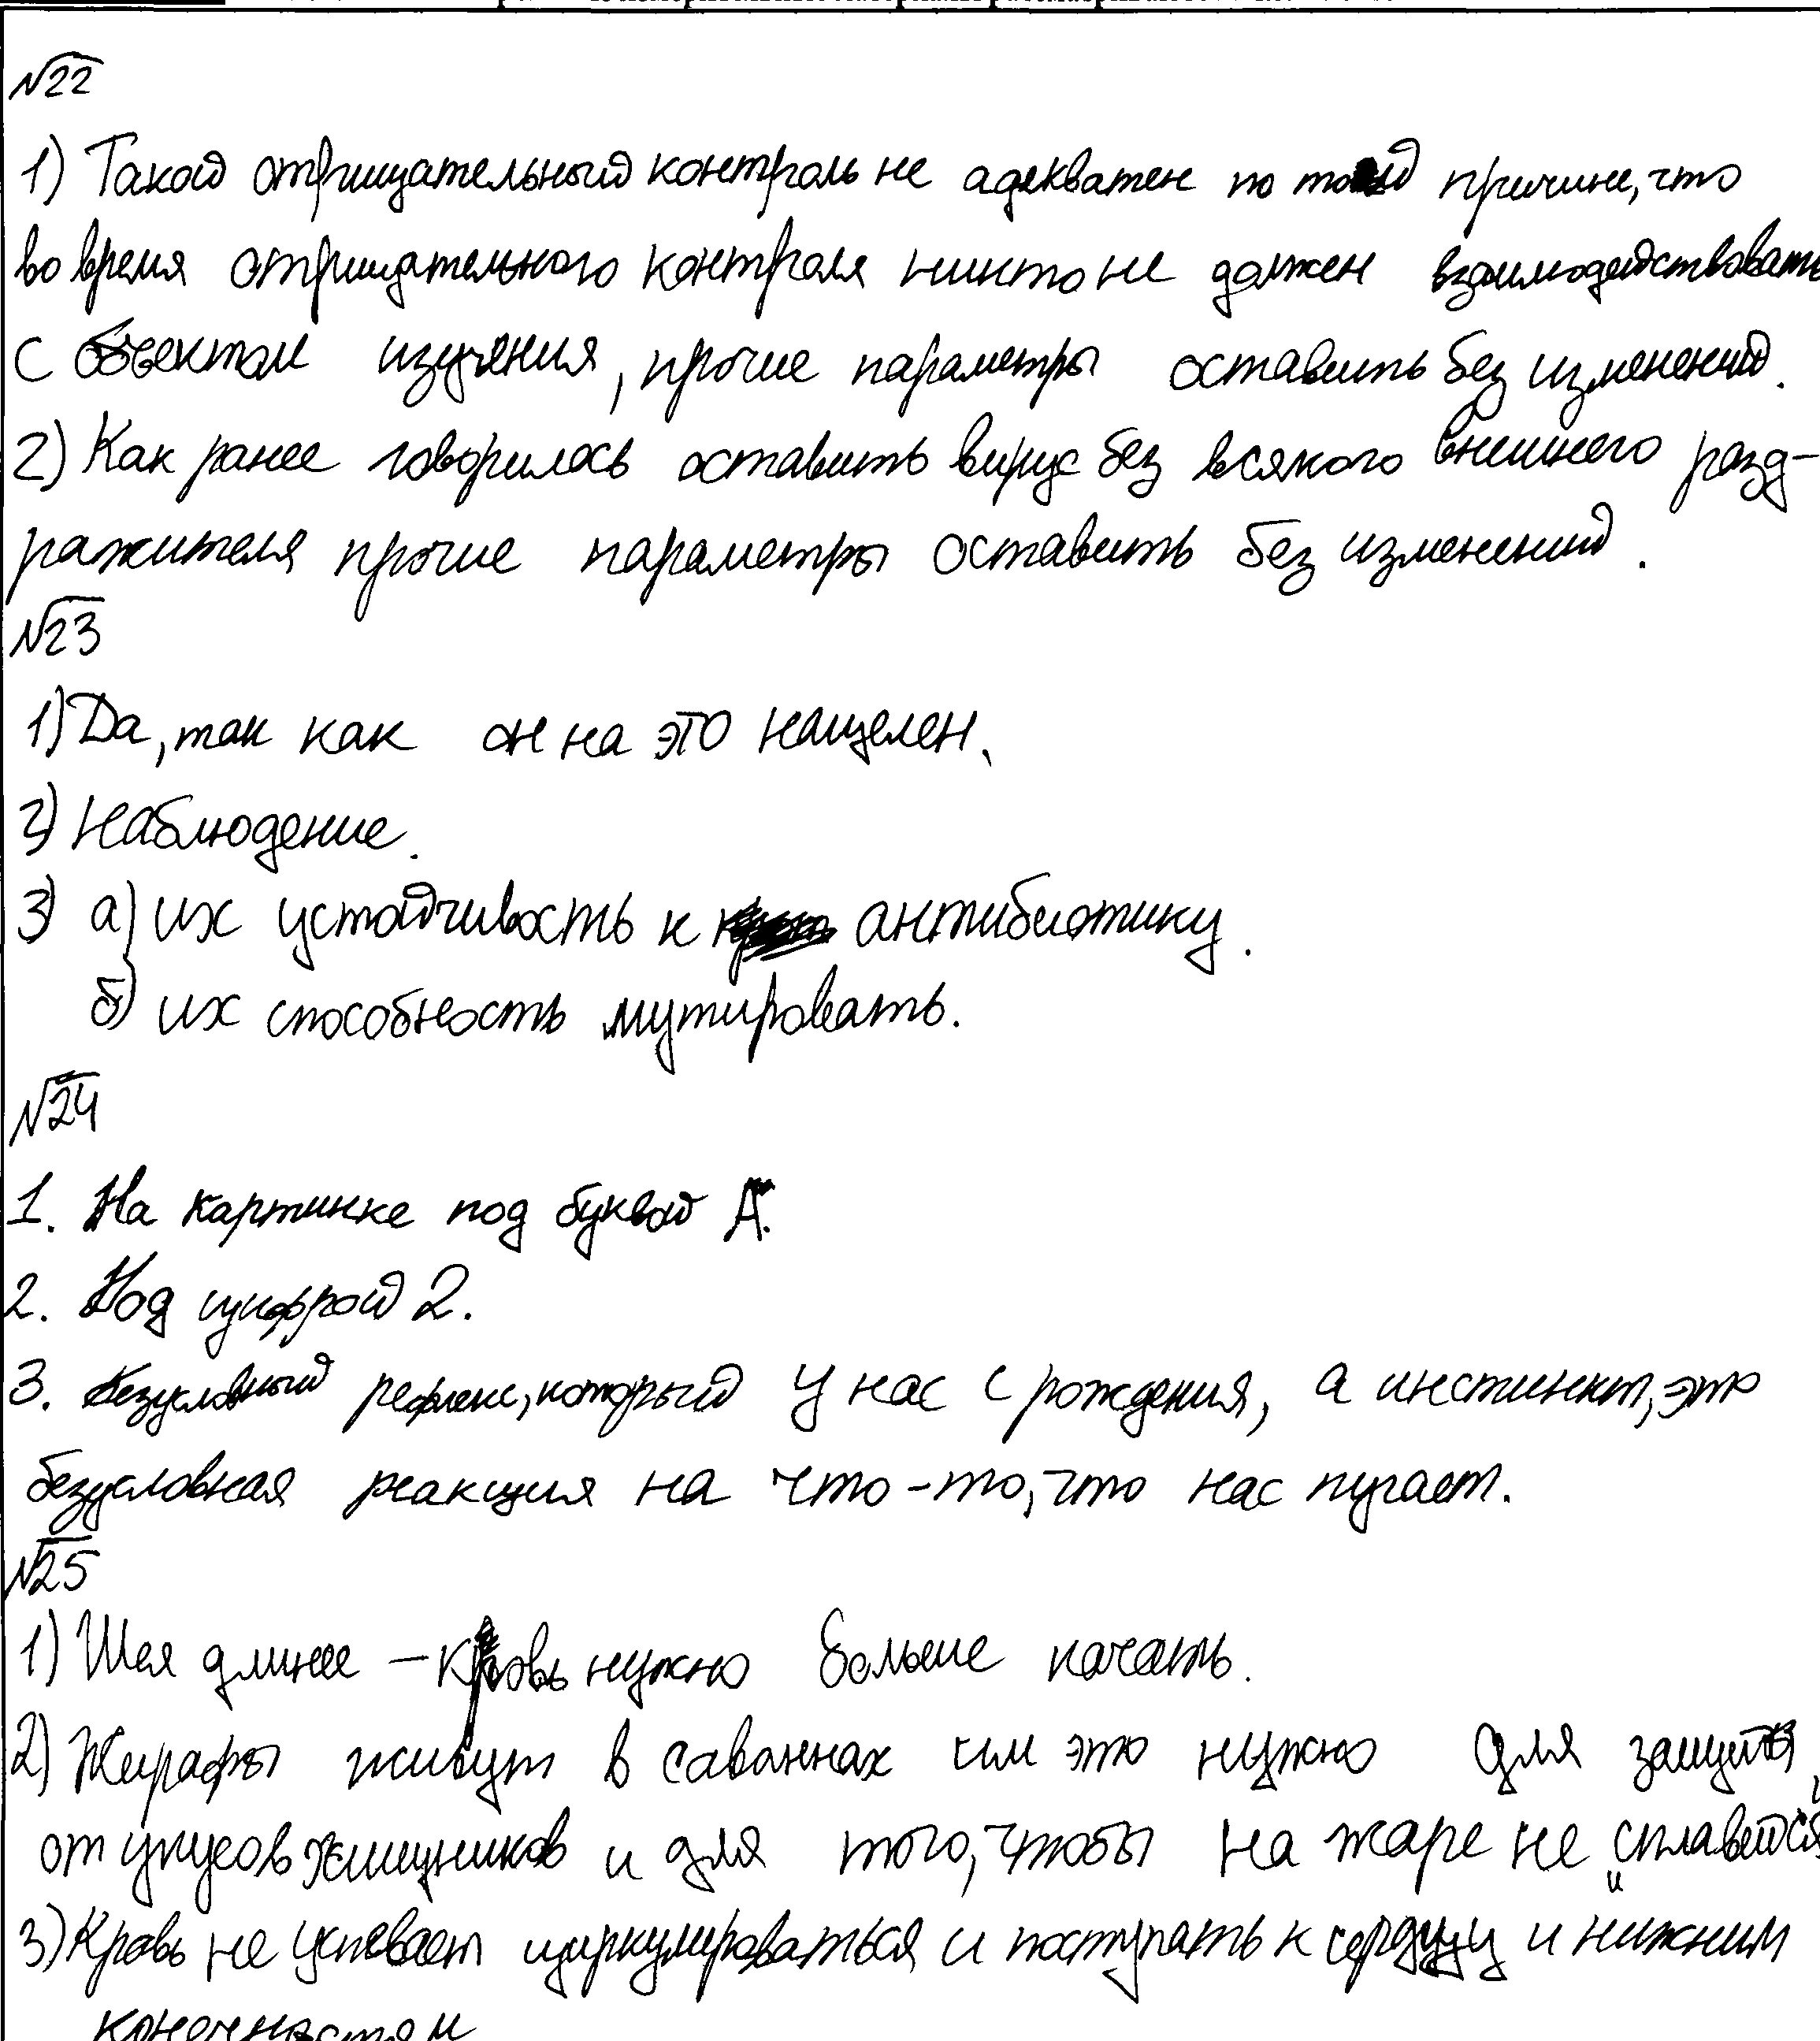 №22
1) Такой отрицательный контроль не адекватен по той причине, что
во время отрицательного контроля никто не должен взаимодействовать
с объектом изучения, прочие параметры оставить без изменений.
2) Как ранее говорилось оставить вирус без всякого внешнего разд-
ражителя прочие параметры оставить без изменений.
№23
1) Да, так как он на это нацелен.
2) Наблюдение.
3) а) их устойчивость к антибиотику.
б) их способность мутировать.
№24
1. На картинке под буквой А.
2. Под цифрой 2.
3. Безусловный рефлекс, который у нас с рождения, а инстинкт, это
безусловная реакция на что-то, что нас пугает.
№25
1) Шея длинее – кровь нужно больше качать.
2) Жирафы живут в саваннах им это нужно для защиты
от укусов хищников и для того, чтобы на жаре не "сплавится
3) Кровь не успевает циркулироваться и поступать к сердцу и нижним
конечностям